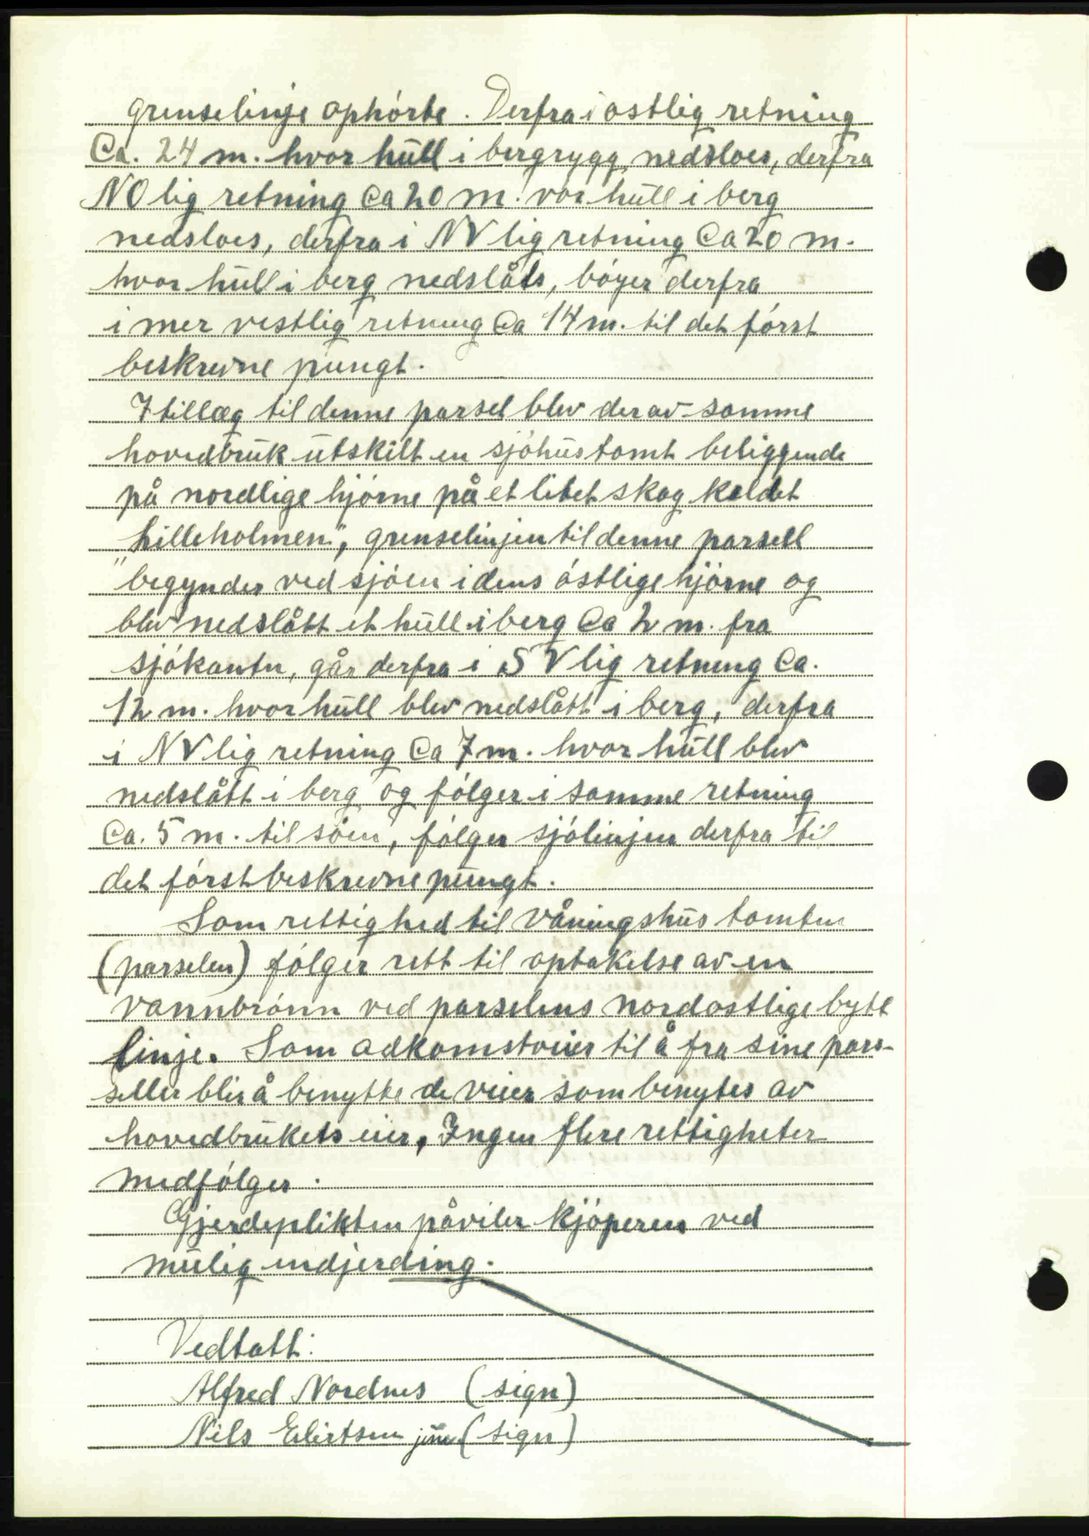 grenselinje ophørte. Derfra i østlig retning
Ca. 24 m. hvor hull i bergrygg nedsloes, derfra
NO lig retning Ca 20 m. vor hull i berg
nedsloes, derfra i NV lig retning Ca 20 m.
hvor hull i berg nedslåts, bøyer derfra
i mer vestlig retning Ca 14 m. til det først
beskrevne pungt.
I tillæg til denne parsel blev der av samme
hovedbruk utskilt en sjøhustomt beliggende
på nordlige hjørne på et litet skog kaldet
"Lilleholmen", grenselinjen til denne parsell
begynder ved sjøen i dens østlige hjørne og
blev nedslått et hull i berg Ca 2 m. fra
sjøkanten, går derfra i SV lig retning Ca.
12 m. hvor hull blev nedslått i berg, derfra
i NV lig retning Ca 7 m. hvor hull blev
nedslått i berg og følger i samme retning
Ca. 5 m. til søen, følger sjølinjen derfra til
det først beskrevne pungt.
Som rettighed til våningshus tomten
(parselen) følger rett til optakelse av en
vannbrønn ved parselens nordostlige bytt
linje. Som adkomstveier til å fra sine par-
seller blir å benytte de veier som benytes av
hovedbrukets eier, Ingen flere rettigheter
medfølger.
Gjerdeplikten påviler kjøperen ved
mulig indjerding.
Vedtatt:
Alfred Nordnes (sign)
Nils Eilertsen jun (sign)